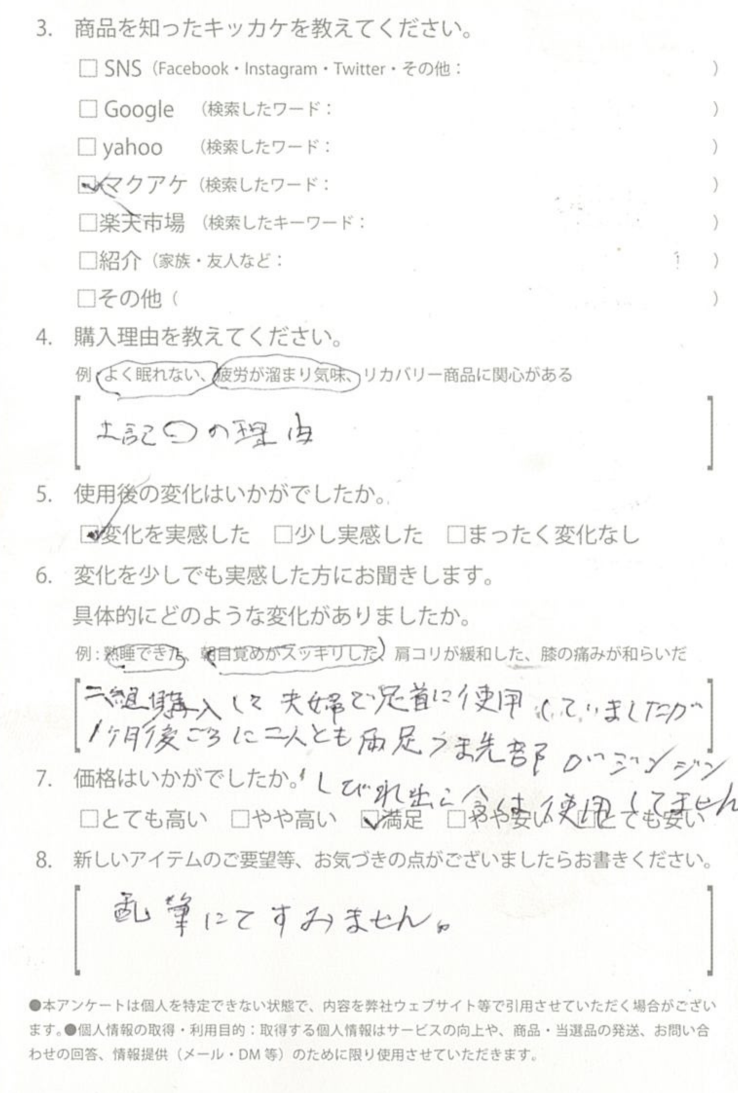 3. 商品を知ったキッカケを教えてください。
□ SNS（Facebook・Instagram・Twitter・その他：　）
□ Google （検索したワード：　）
□ yahoo （検索したワード：　）
☑マクアケ（検索したワード：　）
□楽天市場（検索したキーワード：　）
□紹介（家族・友人など：　）
□その他（　）
4. 購入理由を教えてください。
例：よく眠れない、疲労が溜まり気味、リカバリー商品に関心がある
上記〇の理由
5. 使用後の変化はいかがでしたか。
☑変化を実感した □少し実感した □まったく変化なし
6. 変化を少しでも実感した方にお聞きします。
具体的にどのような変化がありましたか。
例：熟睡できた、朝目覚めがスッキリした、肩コリが緩和した、膝の痛みが和らいだ
二組購入して夫婦で足首に使用していましたが
1ヶ月後ごろに二人とも両足つま先部がジンジン
7. 価格はいかがでしたか。
しびれ出し今は使用してません
□とても高い □やや高い ☑満足 □やや安い □とても安い
8. 新しいアイテムのご要望等、お気づきの点がございましたらお書きください。
乱筆にてすみません。
●本アンケートは個人を特定できない状態で、内容を弊社ウェブサイト等で引用させていただく場合がござい
ます。●個人情報の取得・利用目的：取得する個人情報はサービスの向上や、商品・当選品の発送、お問い合
わせの回答、情報提供（メール・DM 等）のために限り使用させていただきます。